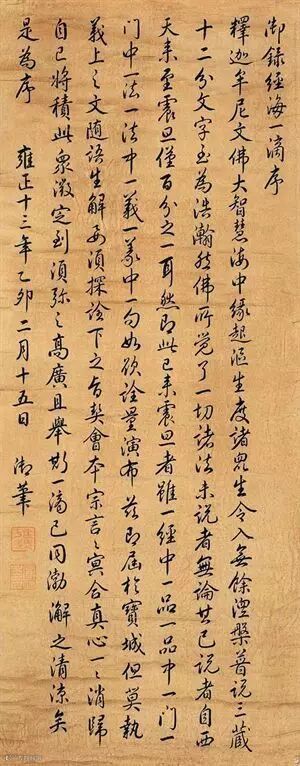 御錄經海一滴序
釋迦牟尼文佛大智慧海中緣起漚生度諸眾生令入無餘涅槃普說三藏
十二分文字至為浩瀚然佛所覺了一切諸法未說者無論其已說者自西
天來至震旦僅百分之一耳然即此已來震旦者雖一經中一品一品中一門一
门中一法一法中一義一義中一句如欲詮量演布茲即屆於寶城但莫執
義上之文随語生解要須探詮下之旨契會本宗言言冥合真心一一消歸
自己將積此眾微定到須弥之高廣且舉斯一滴已同渤澥之清涼矣
是為序
雍正十三年乙卯二月十五日 御筆